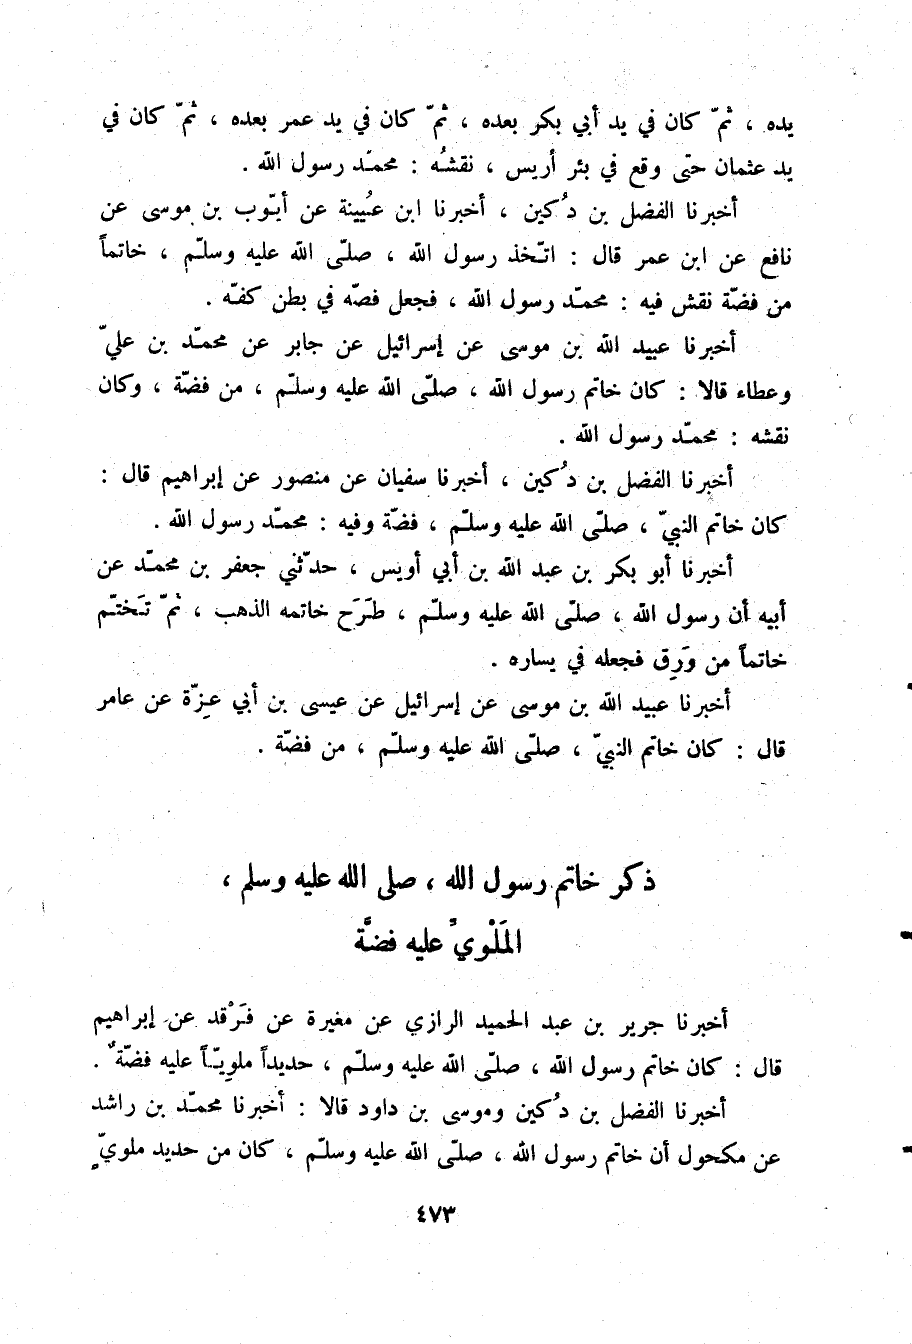 يده ، ثمّ كان في يد أبي بكر بعده ، ثمّ كان في يد عمر بعده ، ثمّ كان في
يد عثمان حتى وقع في بئر أريس ، نقشُه : محمّد رسول الله .
أخبرنا الفضل بن دُكين ، أخبرنا ابن عُيينة عن أيّوب بن موسى عن
نافع عن ابن عمر قال : اتّخذ رسول الله ، صلّى الله عليه وسلّم ، خاتماً
من فضّة نقش فيه : محمّد رسول الله ، فجعل فصّه في بطن كفّه .
أخبرنا عبيد الله بن موسى عن إسرائيل عن جابر عن محمّد بن عليّ
وعطاء قالا : كان خاتم رسول الله ، صلّى الله عليه وسلّم ، من فضّة ، وكان
نقشه : محمّد رسول الله .
أخبرنا الفضل بن دُكين ، أخبرنا سفيان عن منصور عن إبراهيم قال :
كان خاتم النبيّ ، صلّى الله عليه وسلّم ، فضّة وفيه : محمّد رسول الله .
أخبرنا أبو بكر بن عبد الله بن أبي أويس ، حدّثني جعفر بن محمّد عن
أبيه أن رسول الله ، صلّى الله عليه وسلّم ، طَرَح خاتمه الذهب ، ثمّ تَختّم
خاتماً من وَرِق فجعله في يساره .
أخبرنا عبيد الله بن موسى عن إسرائيل عن عيسى بن أبي عزّة عن عامر
قال : كان خاتم النبيّ ، صلّى الله عليه وسلّم ، من فضّة .
ذكر خاتم رسول الله ، صلى الله عليه وسلم ،
المَلْويُّ عليه فضَّة
أخبرنا جرير بن عبد الحميد الرازي عن مغيرة عن فَرْقد عن إبراهيم
قال : كان خاتم رسول الله ، صلّى الله عليه وسلّم ، حديداً ملويّاً عليه فضّةٌ .
أخبرنا الفضل بن دُكين وموسى بن داود قالا : أخبرنا محمّد بن راشد
عن مكحول أن خاتم رسول الله ، صلّى الله عليه وسلّم ، كان من حديد ملويّ
٤٧٣